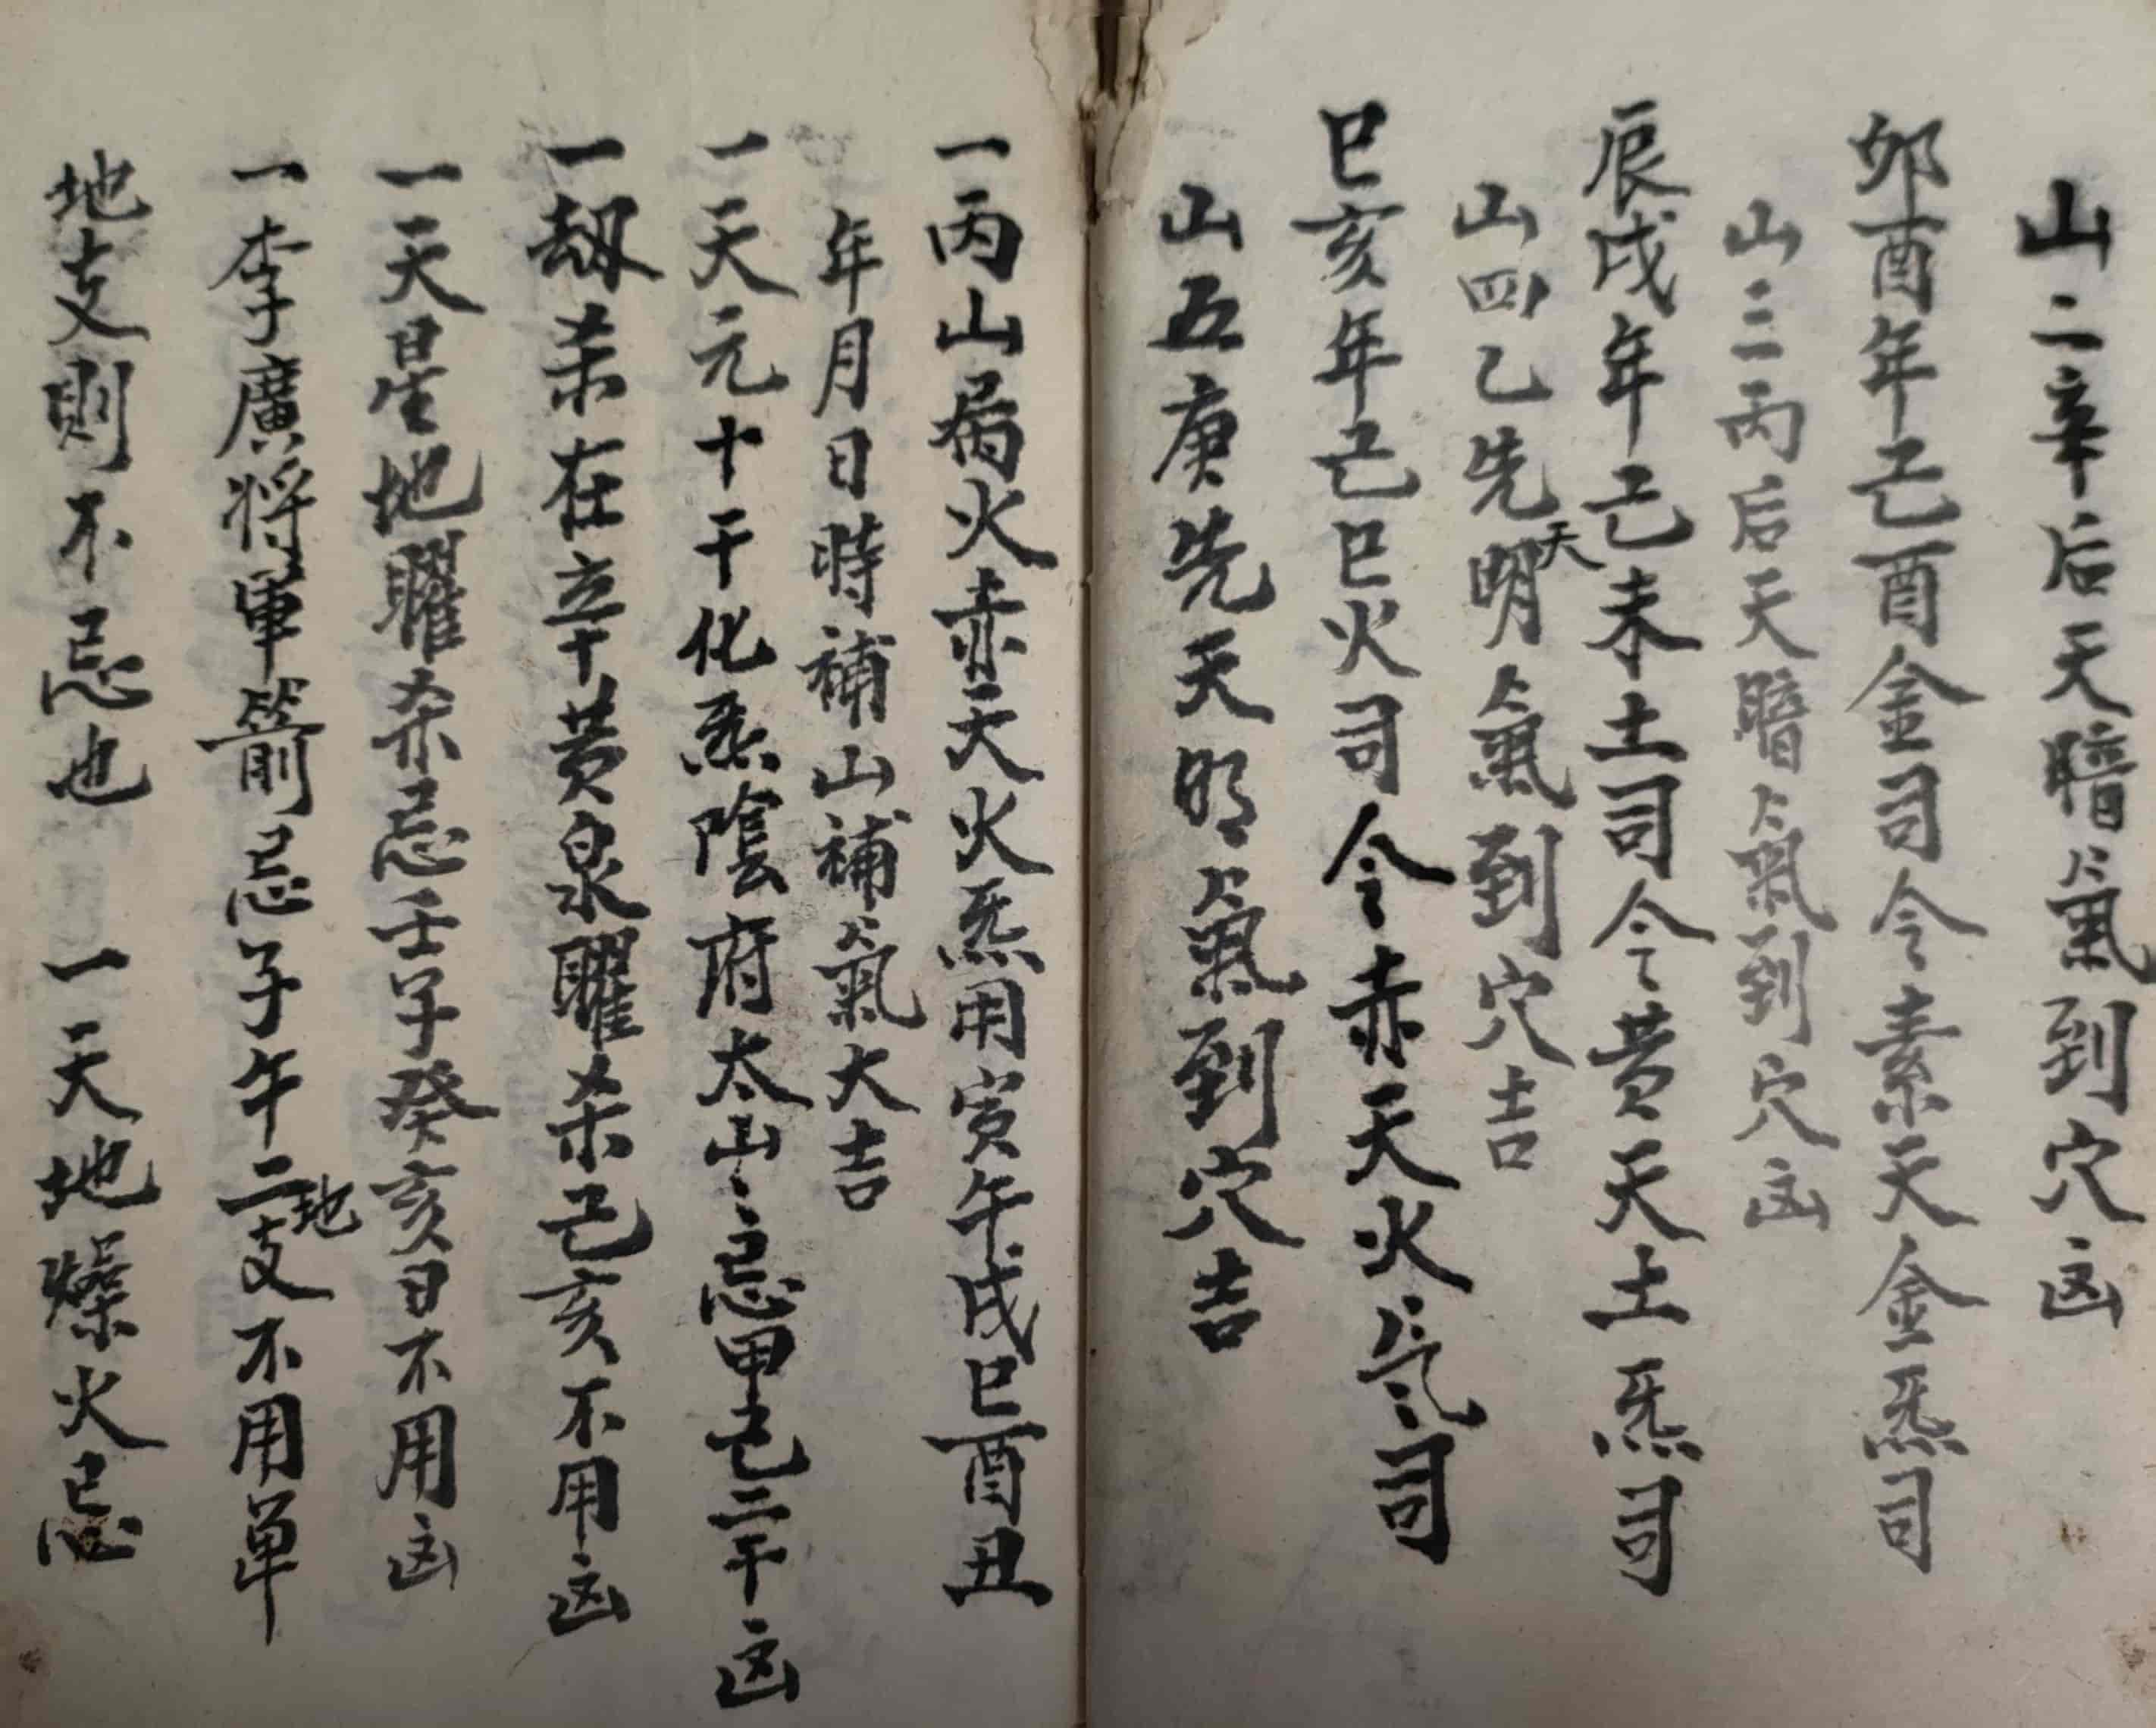 山二辛后天暗氣到穴凶
卯酉年己酉金司令素天金炁司
山三丙后天暗氣到穴凶
辰戌年己未土司令黄天土炁司
山四乙先天明氣到穴吉
巳亥年己巳火司令赤天火氣司
山五庚先天明氣到穴吉
一丙山属火赤天火炁用寅午戌巳酉丑
年月日時補山補氣大吉
一天元十干化炁陰府太山〻忌甲己二干凶
一劫杀在辛黄泉曜杀己亥不用凶
一天星地曜杀忌壬子癸亥日不用凶
一李廣將軍箭忌子午二地支不用单
地支則不忌也 一天地燥火忌